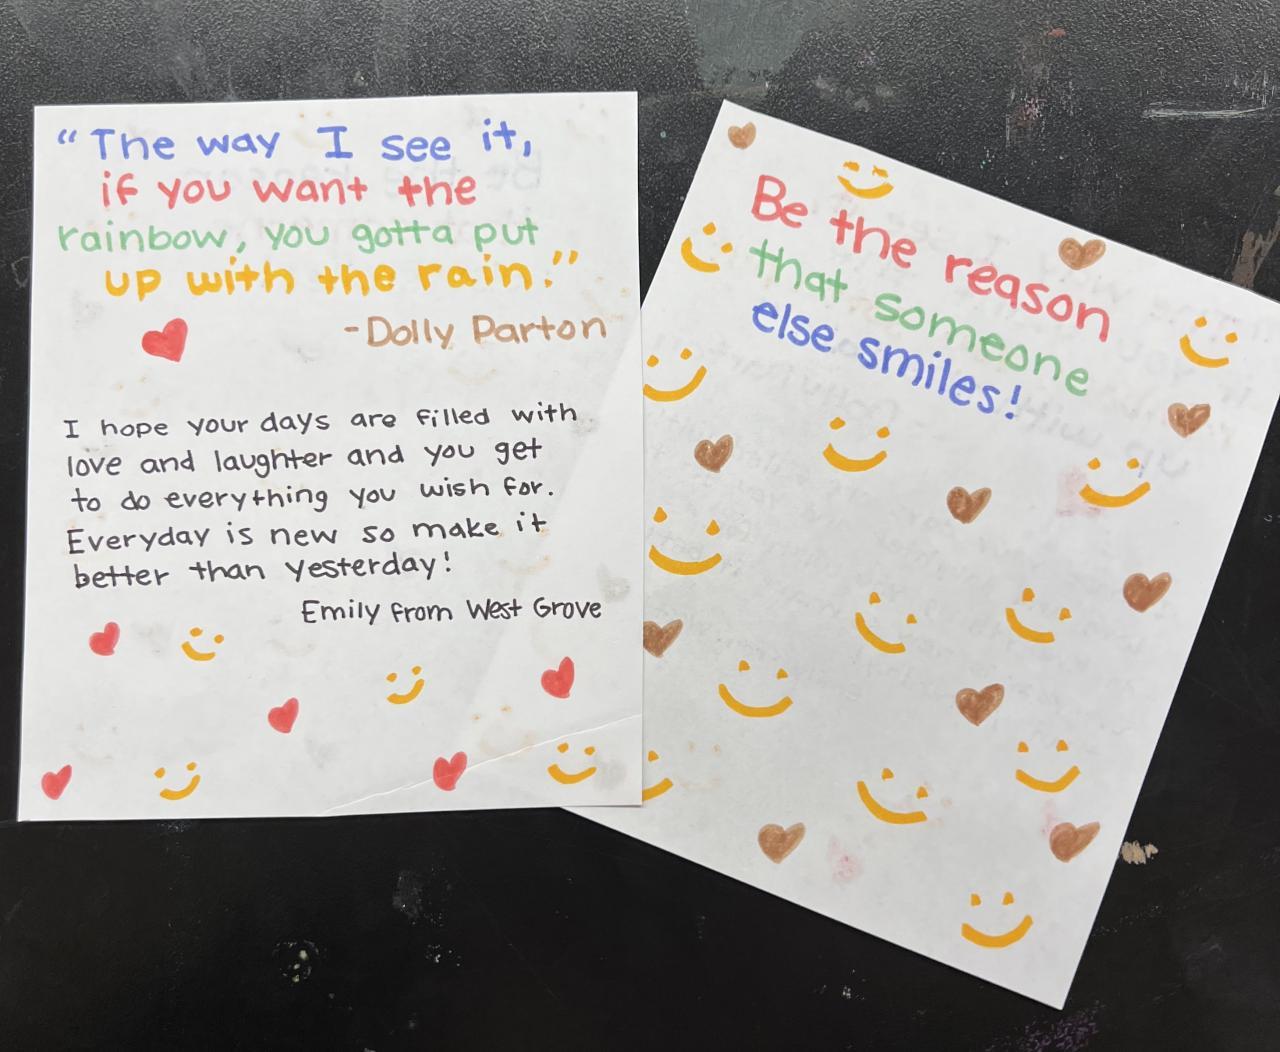 “The way I see it,
if you want the
rainbow, you gotta put
up with the rain.”
-Dolly Parton
I hope your days are filled with
love and laughter and you get
to do everything you wish for.
Everyday is new so make it
better than yesterday!
Emily from West Grove
Be the reason
that someone
else smiles!